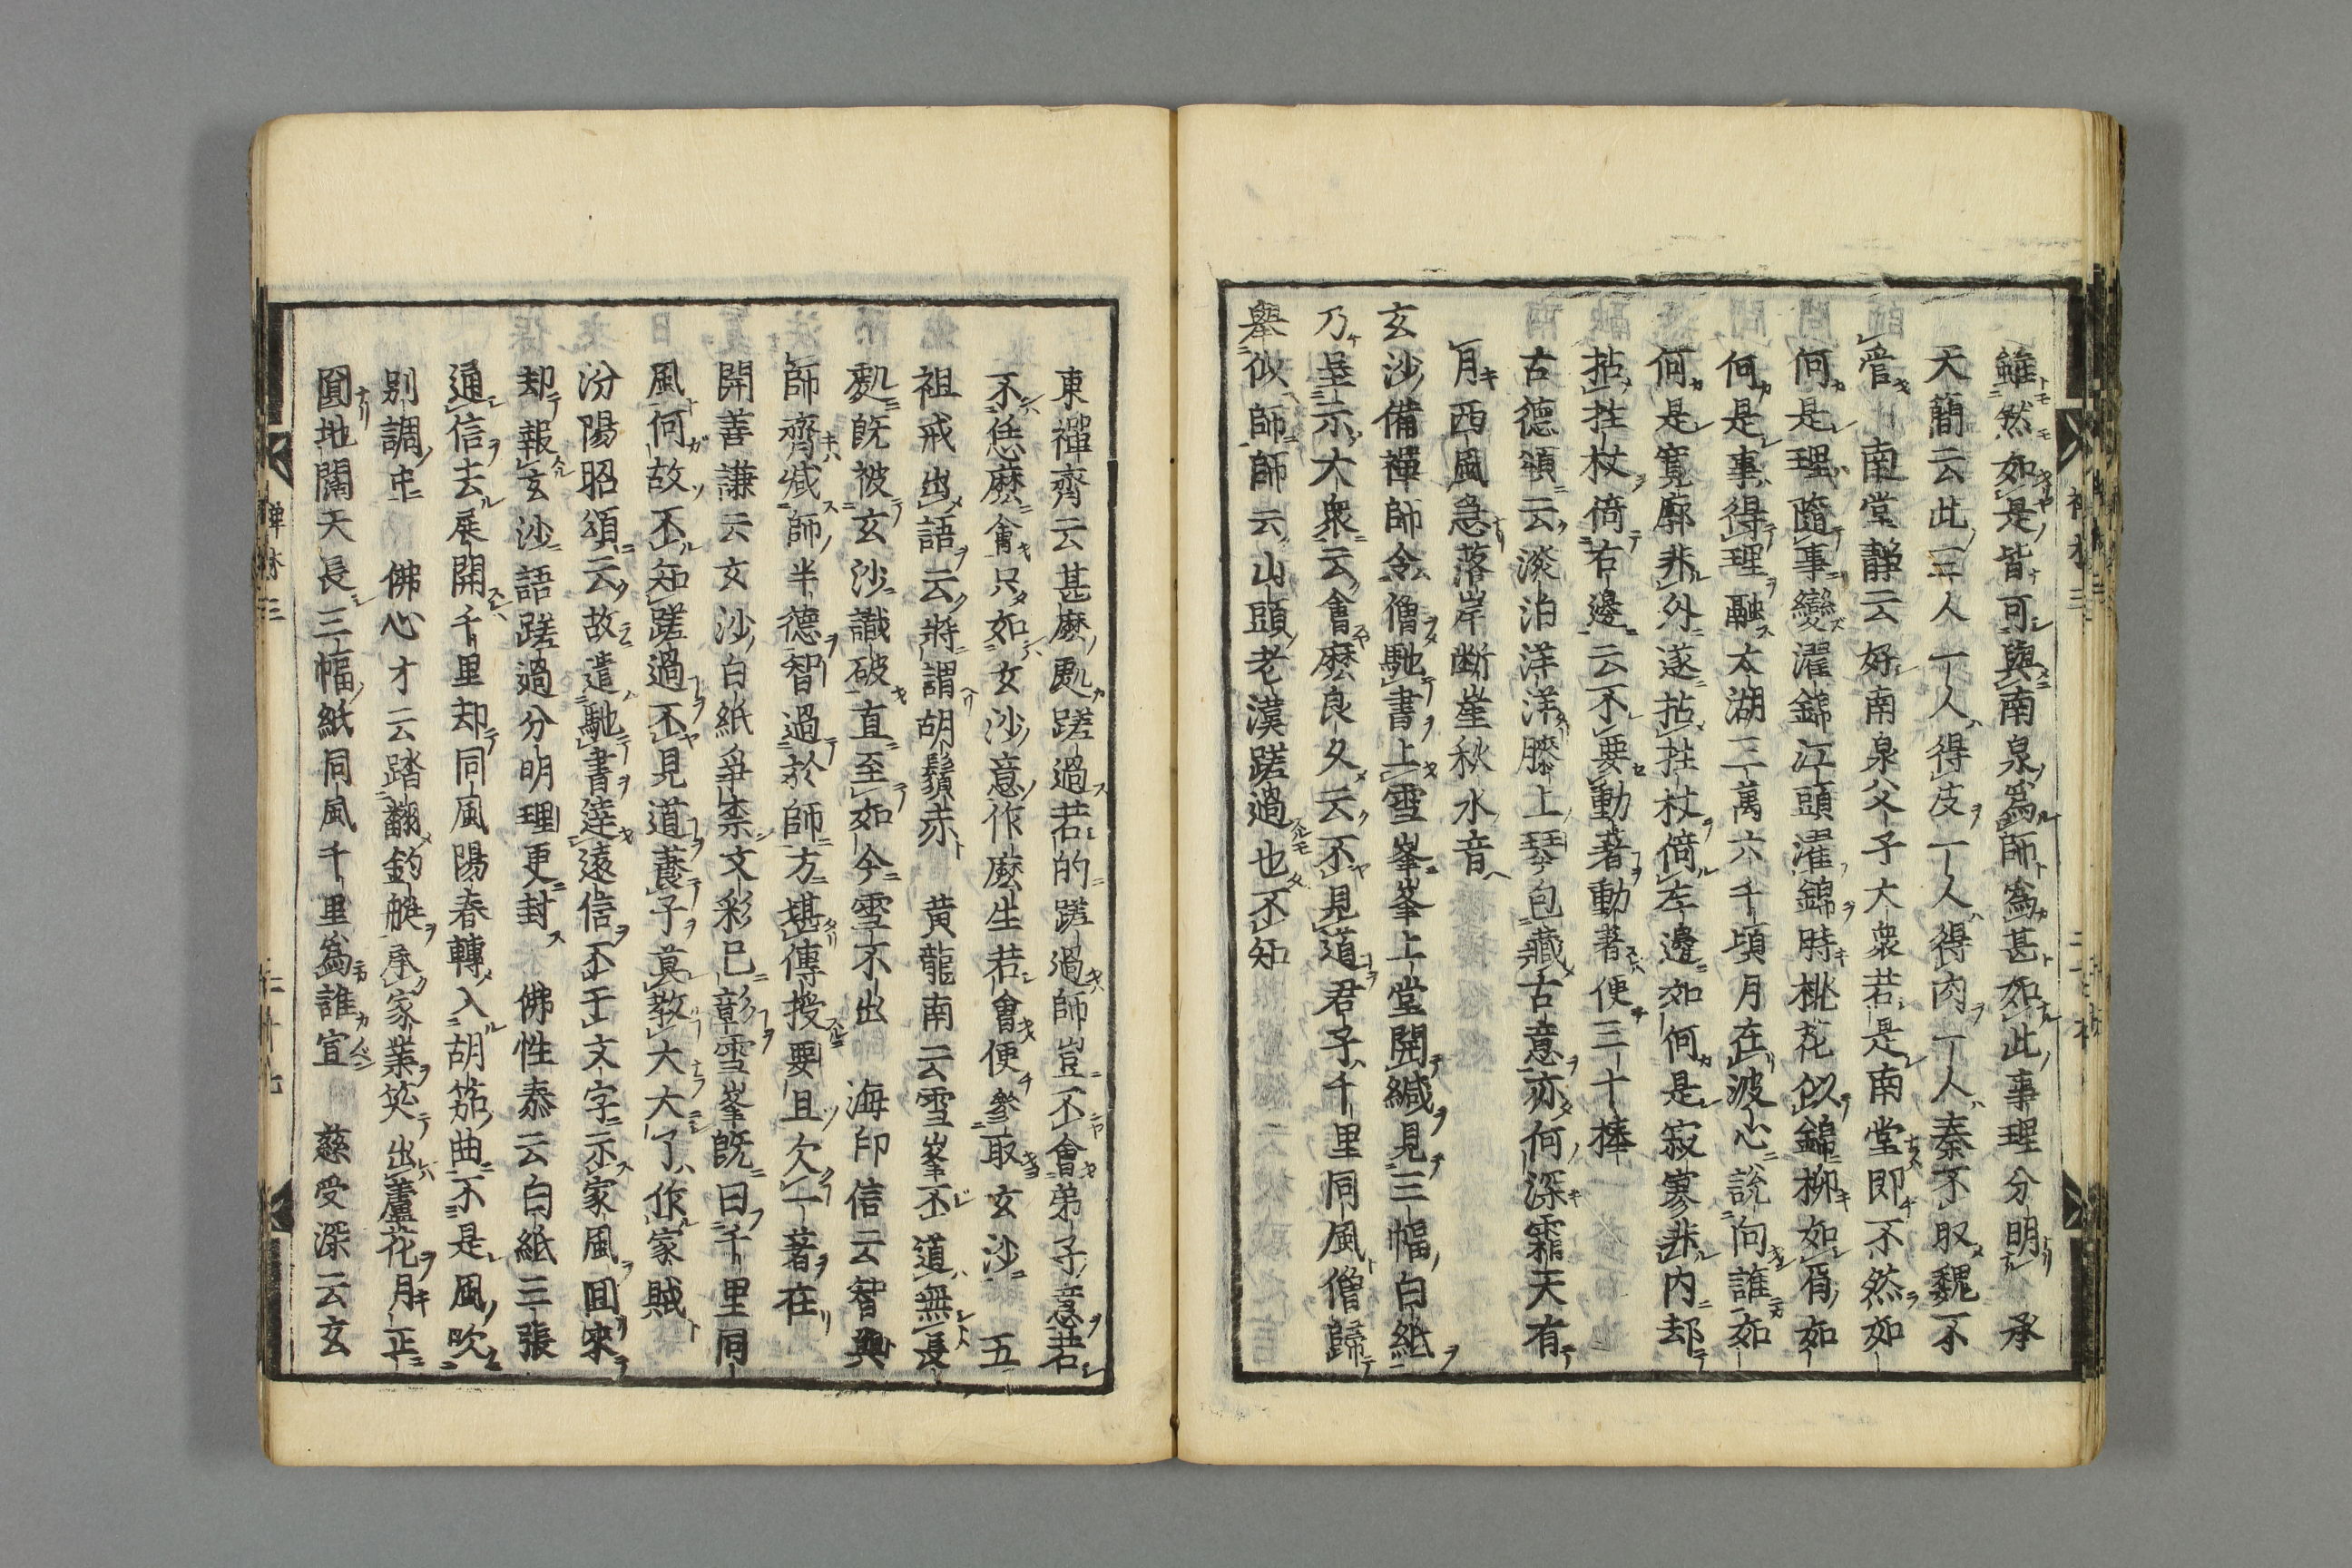 雖然如是皆可與南泉爲師爲甚如此事理分明　承
天簡云此三人一人得皮一人得肉一人秦不収魏不
管　南堂靜云好南泉父子大衆若是南堂即不然如
何是理隨事變濯錦江頭濯錦時桃花似錦柳如眉如
何是事得理融太湖三萬六千頃月在波心說向誰如
何是寛廓非外遂拈拄杖倚左邊如何是寂寥非内却
拈拄杖倚右邊云不要動著動著便三十棒
古德頌云淡泊洋洋膝上琴包藏古意亦何深霜天有
月西風急落岸断崖秋水音
玄沙備禪師令僧馳書上雪峯峯上堂開緘見三幅白紙
乃呈示大衆云會麽良久云不見道君子千里同風僧歸
舉似師師云山頭老漢蹉過也不知
東禪齊云甚麽處蹉過若的蹉過師豈不會弟子意若
不恁麽會只如玄沙意作麽生若會便參取玄沙　五
祖戒出語云將謂胡鬚赤　黄龍南云雪峯不道無長
處既被玄沙識破直至如今雪不出　海印信云智與
師齊減師半德智過於師方堪傳授要且欠一著在
開善謙云玄沙白紙爭柰文彩已彰雪峯既曰千里同
風何故不知蹉過不見道養子莫教大大了作家賊
汾陽昭頌云故遣馳書達遠信不于文字示家風回來
却報玄沙語蹉過分明理更封　佛性泰云白紙三張
通信去展開千里却同風陽春轉入胡笳曲不是風吹
別調中　佛心才云踏翻釣艇承家業笑出蘆花月正
圓地闊天長三幅紙同風千里爲誰宣　慈受深云玄